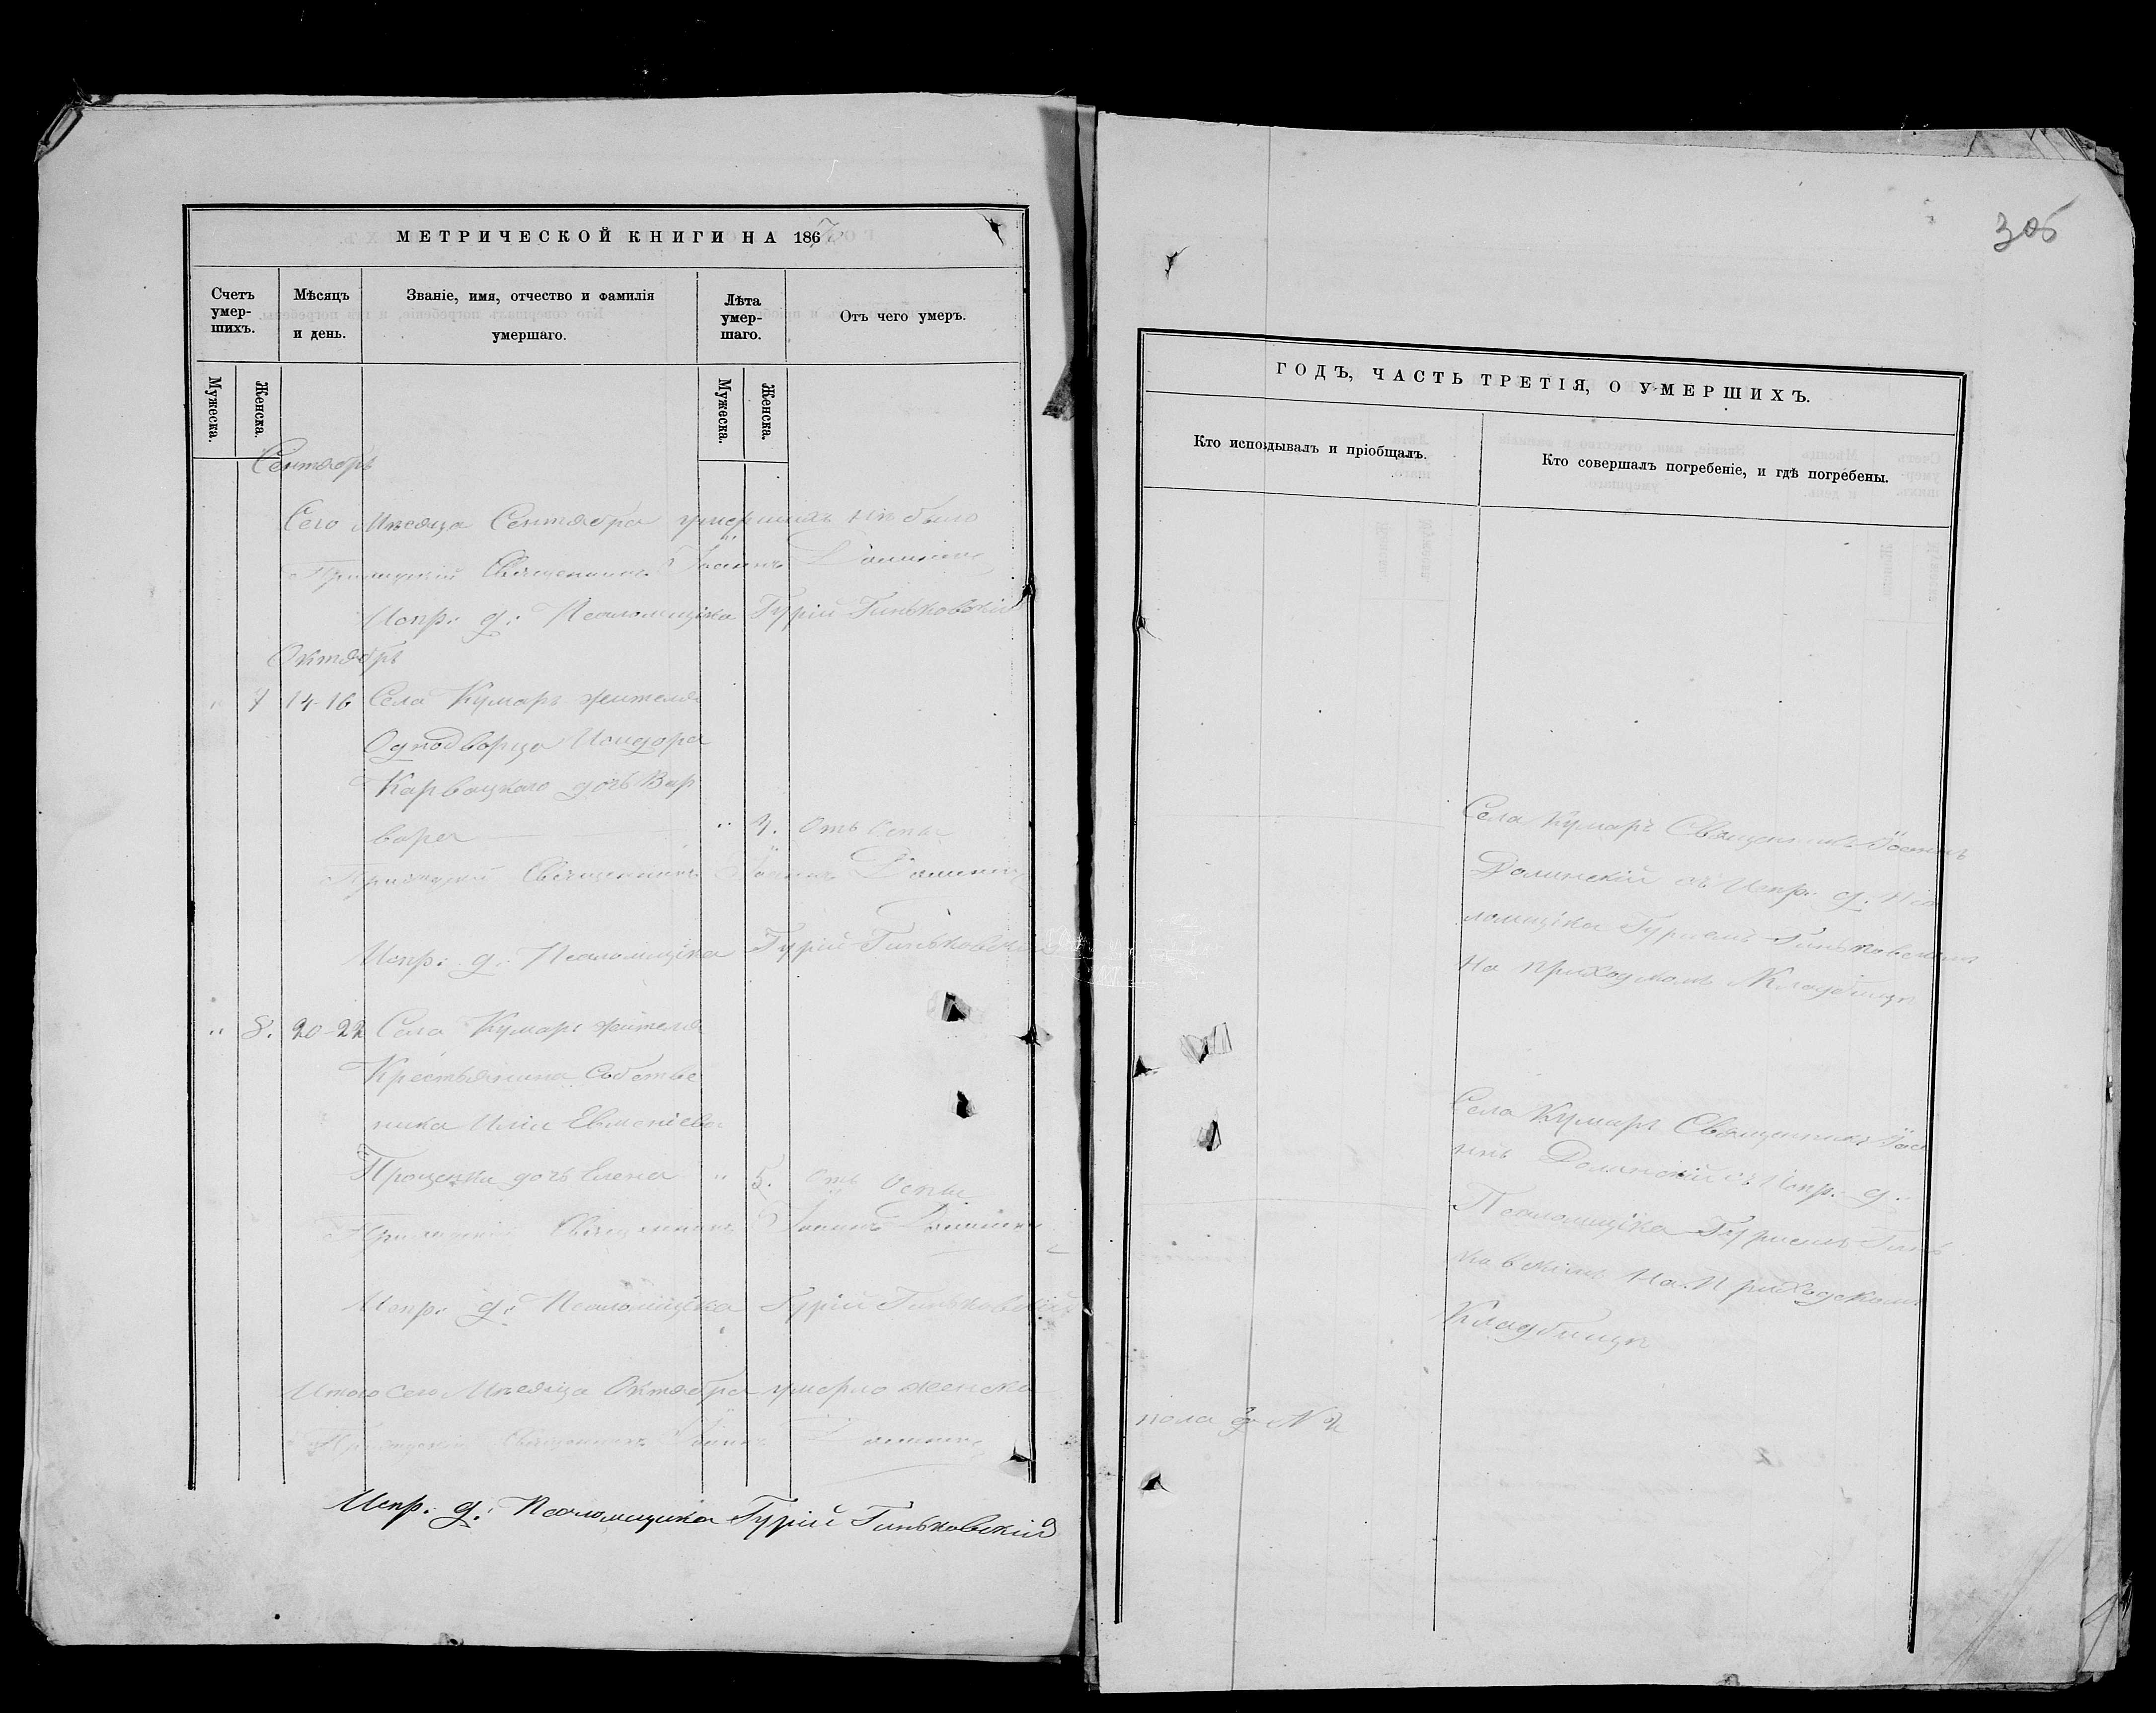 МЕТРИЧЕСКОЙ КНИГИ НА 186
Счетъ умер-шихъ.
Мѣсяцъ и день.
Званіе, имя, отчество и фамилія умершаго.
Лѣта умер-шаго.
Отъ чего умеръ.
Мужеска.
Женска.
Мужеска.
Женска.
Сентябрь
Сего Мѣсяца Сентября умершихъ не было
Приходскій Священникъ Іоаннъ
Испр: д: Псаломщика Гурій Гиньковскій
Октябрь
" 7 14-16 Села Кумаръ жителя
Однодворца Исидора
Карвацкаго дочь Вар
вара " 4. Отъ оспы
Приходскій Священникъ Іоаннъ
Испр: д: Псаломщика Гурій Гиньковскій
" 8. 20-22 Села Кумаръ жителя
Крестьянина Собстве
ника Иліи Евменіева
Проценки дочь Елена " 5. Отъ Оспы
Приходскій Священникъ Іоаннъ
Испр: д: Псаломщика Гурій Гиньковскій
Итого сего Мѣсяца Октября умерло женска
Приходскій Священникъ Іоаннъ
Испр: д: Псаломщика Гурій Гиньковскій
305
ГОДЪ, ЧАСТЬ ТРЕТІЯ, О УМЕРШИХЪ.
Кто исповѣдывалъ и пріобщалъ.
Кто совершалъ погребеніе, и гдѣ погребены.
Села Кумаръ Священникъ Іоаннъ
Долинскій съ Испр: д: Пса
ломщика Гуріемъ Гиньковскимъ
На приходскомъ Кладбищѣ
Села Кумаръ Священникъ Іоа
ннъ Долинскій съ Испр: д:
Псаломщика Гуріемъ Гинь
ковскимъ На Приходскомъ
Кладбищѣ
пола